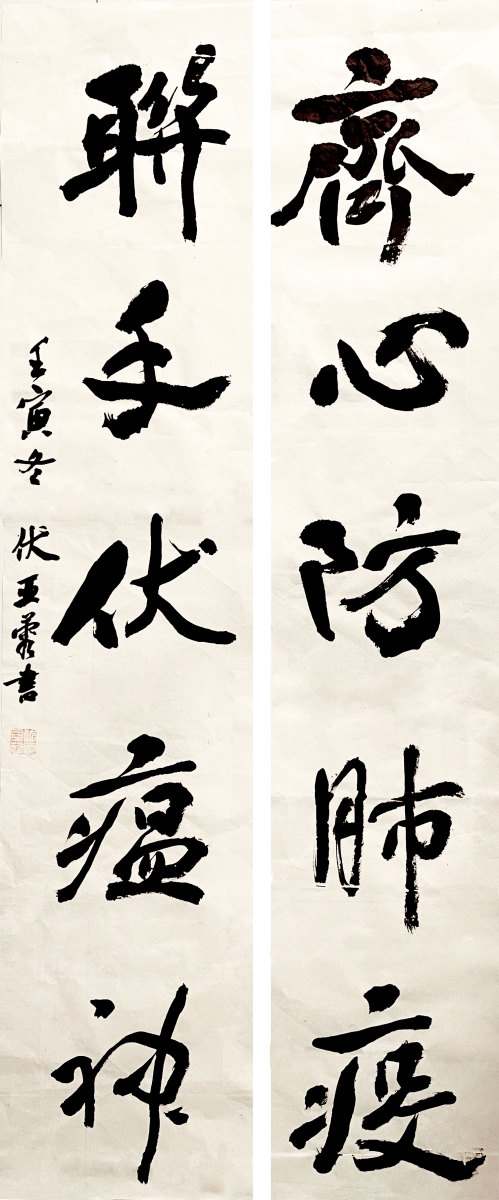 齊心防肺疫
聯手伏瘟神
壬寅冬 伏亚蓉書